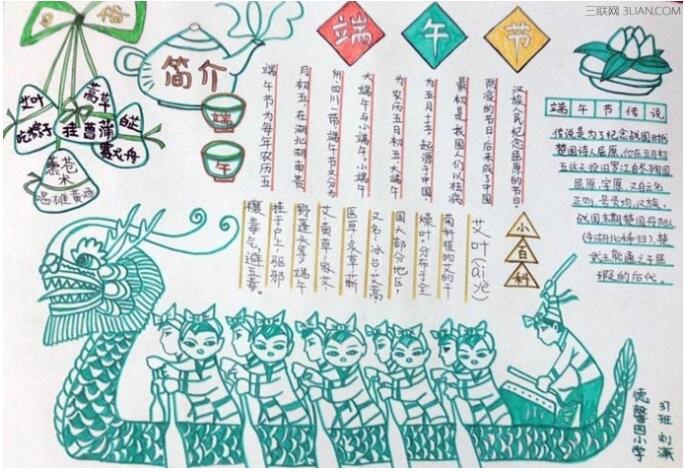 三联网 3LIAN.COM
习俗
艾叶
蒿草
白芷
吃粽子
挂菖蒲
赛龙舟
熏苍术
喝雄黄酒
简介
端
午
端午节
端午节为每年农历五
月初五,在湖北湖南贵
州四川一带端午节又分为
大端午与小端午。小端午
为农历五月初五,大端午
为五月十五。起源于中国,
最初是我国人们以祛病
防疫的节日,后来成了中国
汉族人民纪念屈原的节日。
端午节传说
传说是为了纪念战国时代
楚国诗人屈原,他在五月初
五这天投汨罗江自杀殉国
屈原,字原,又自云名
正则,号灵均,汉族,
战国末期楚国丹阳
(今湖北秭归),楚
武王熊通之子屈
瑕的后代。
小百科
艾叶(ài yè)
菊科植物艾的干
燥叶。分布于全
国大部分地区,
又名:冰台、艾蒿
医草、灸草、蕲
艾、黄草、家艾
野莲头等,端午
挂于户上,驱邪
禳毒气,避五毒。
31班 刘潇
德馨园小学